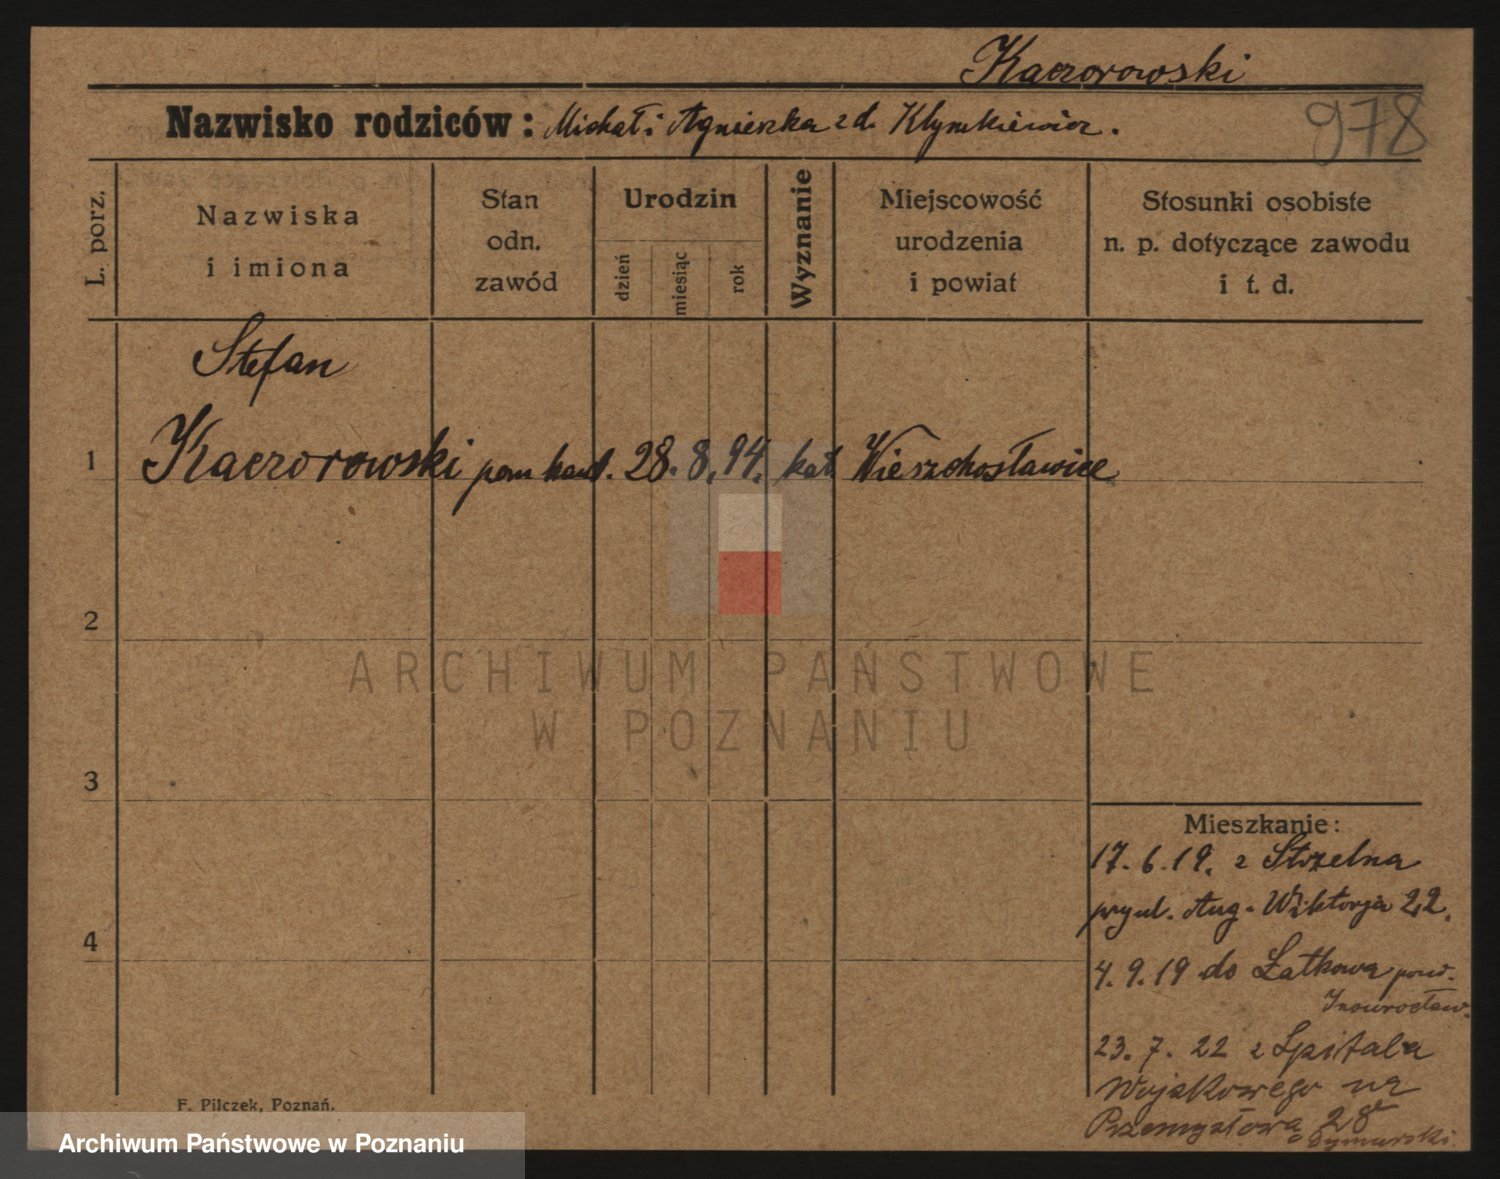 Kaczorowski
978
Nazwisko rodziców: Michał i Agnieszka z d. Klymkiewicz.
L. porz.
Nazwiska
i imiona
Stan
odn.
zawód
Urodzin
dzień
miesiąc
rok
Wyznanie
Miejscowość
urodzenia
i powiat
Stosunki osobiste
n. p. dotyczące zawodu
i t. d.
Stefan
1 Kaczorowski pom handl. 28. 8. 94. kat Wieszchosławice
2
ARCHIWUM PAŃSTWOWE
W POZNANIU
3
Mieszkanie:
17. 6. 19. z Strzelna
Aug. Wiktorja 22.
4
4. 9. 19 do Łatkowa pow.
Inowrocław.
23. 7. 22 z Szpitala
Wojskowego na
Przemysłowa 28
F. Pilczek, Poznań.
Archiwum Państwowe w Poznaniu